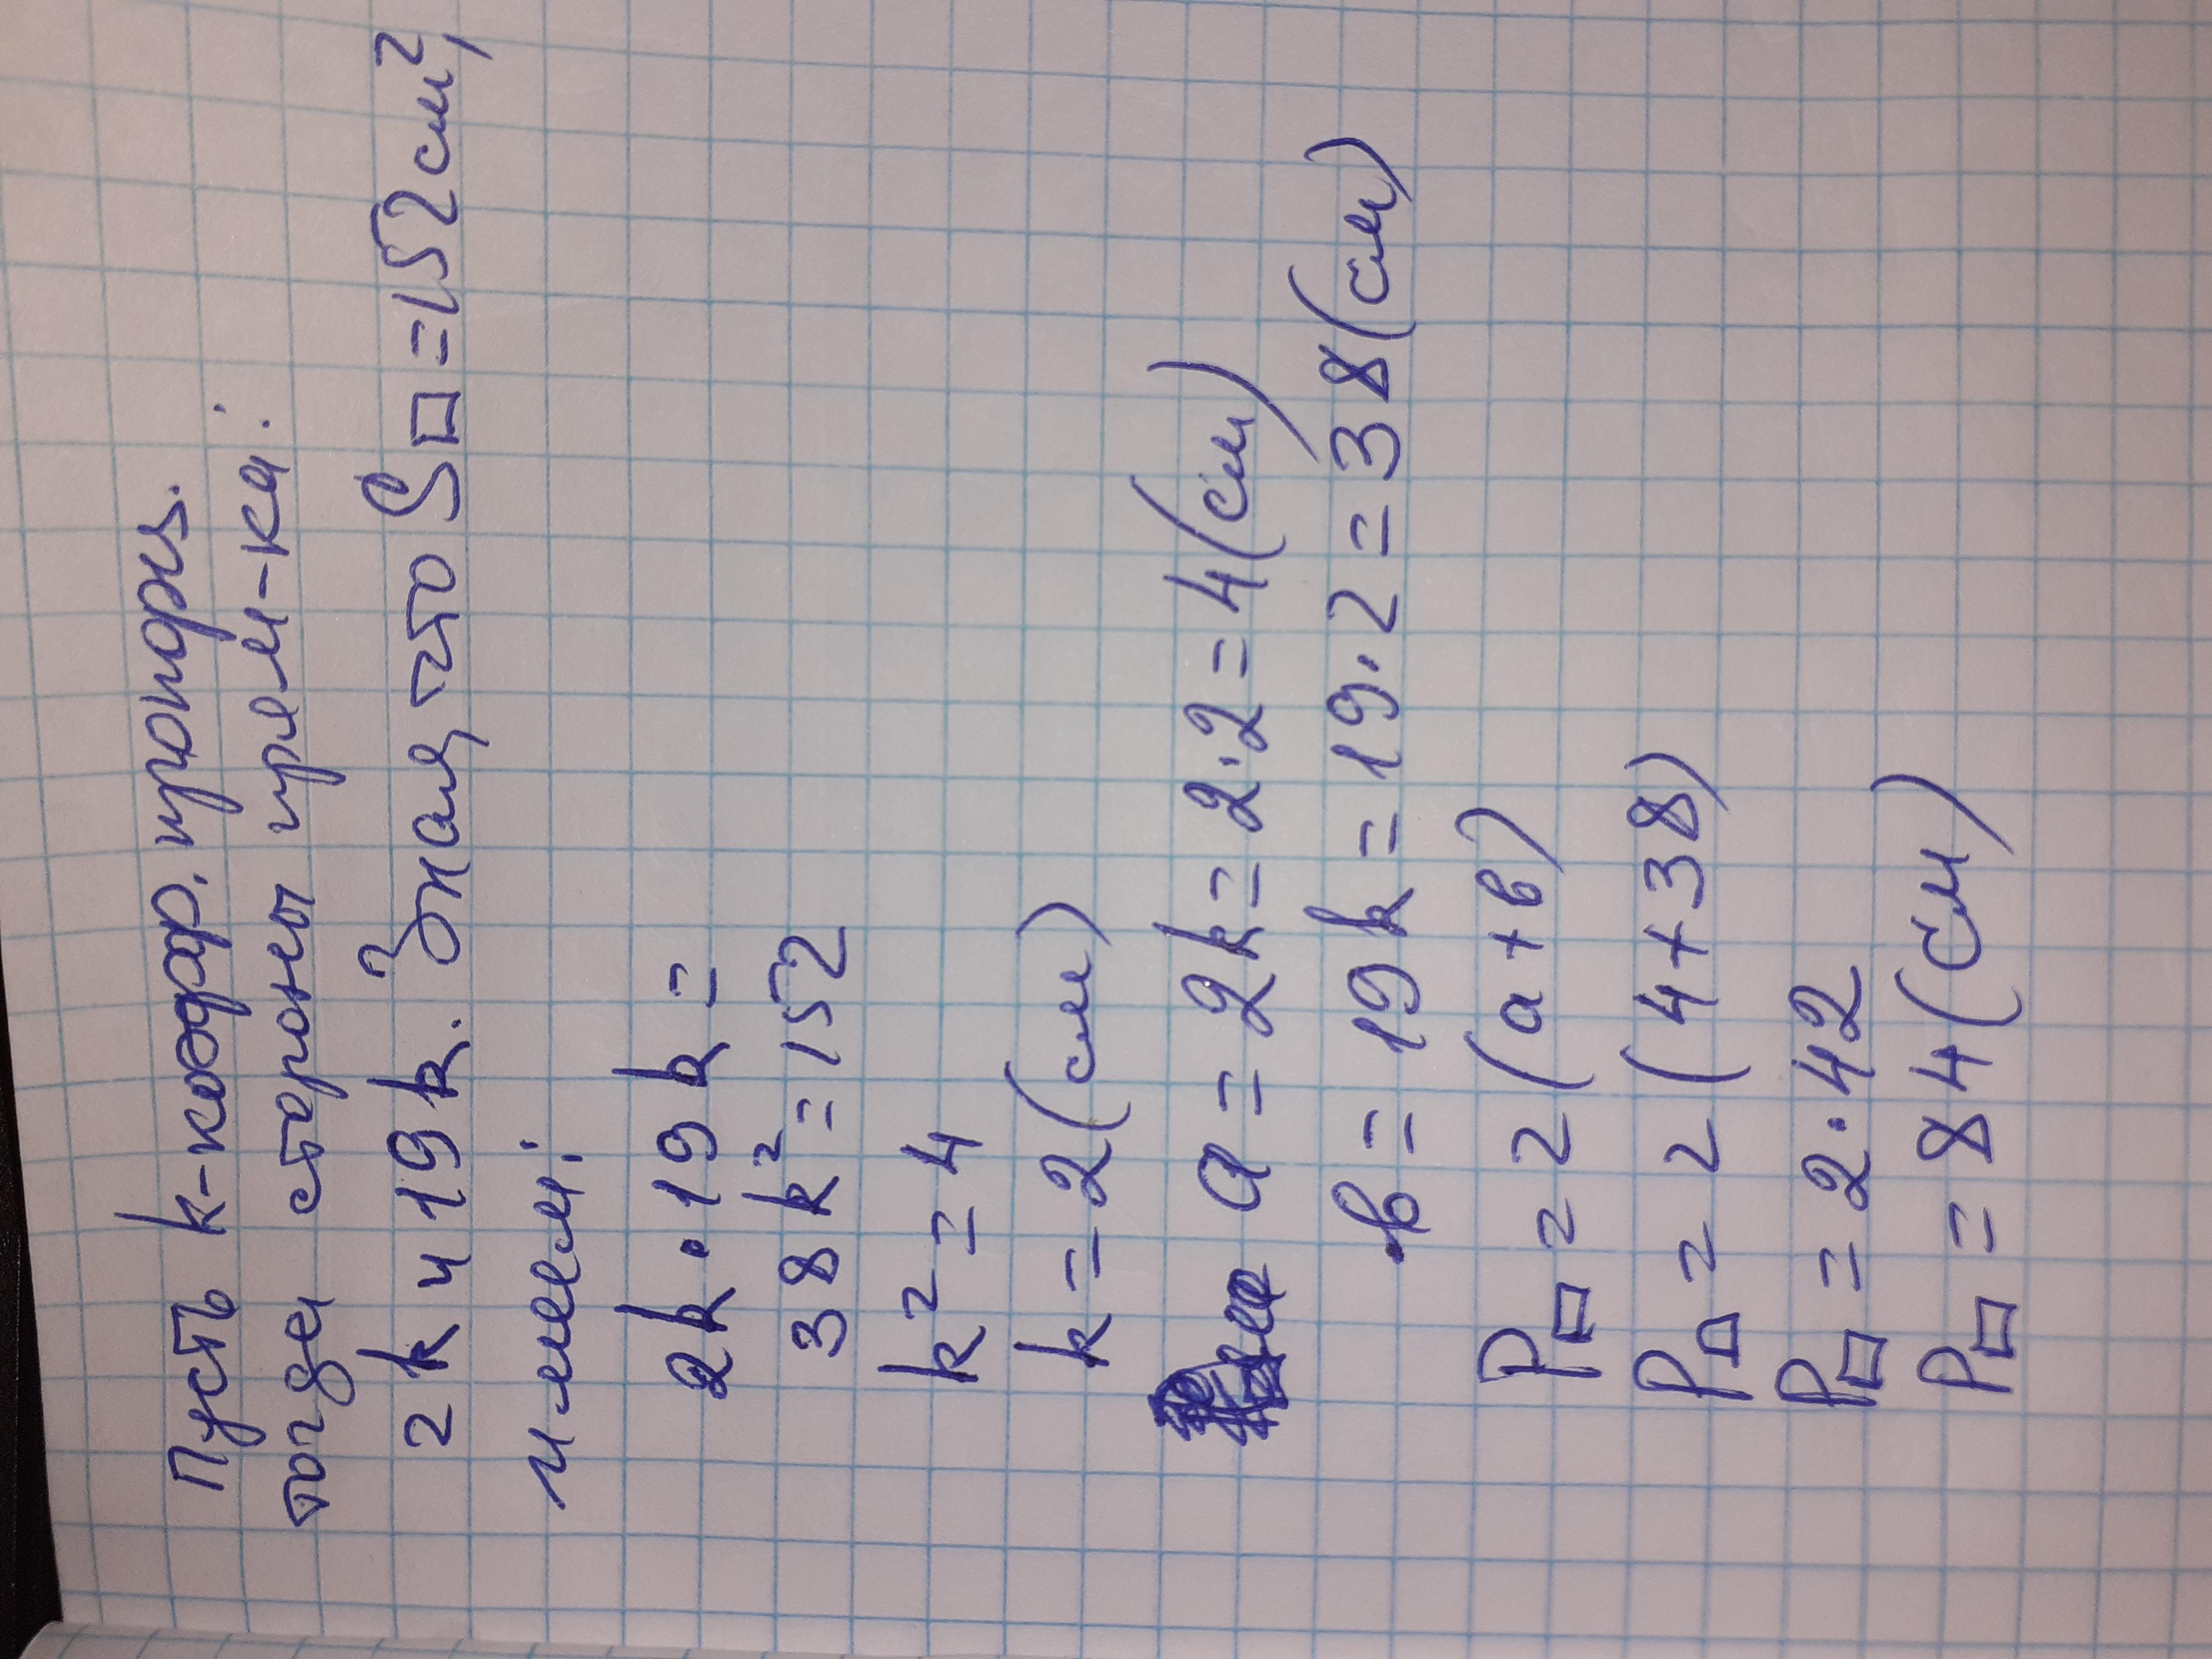 Пусть k-коэфф. пропорц.
тогда стороны прям-ка:
2k и 19k. Зная, что S□=152см²,
имеем:
2k·19k=
38k²=152
k²=4
k=2(см)
a=2k=2·2=4(см)
в=19k=19·2=38(см)
P□=2(а+в)
P□=2(4+38)
P□=2·42
P□=84(см)